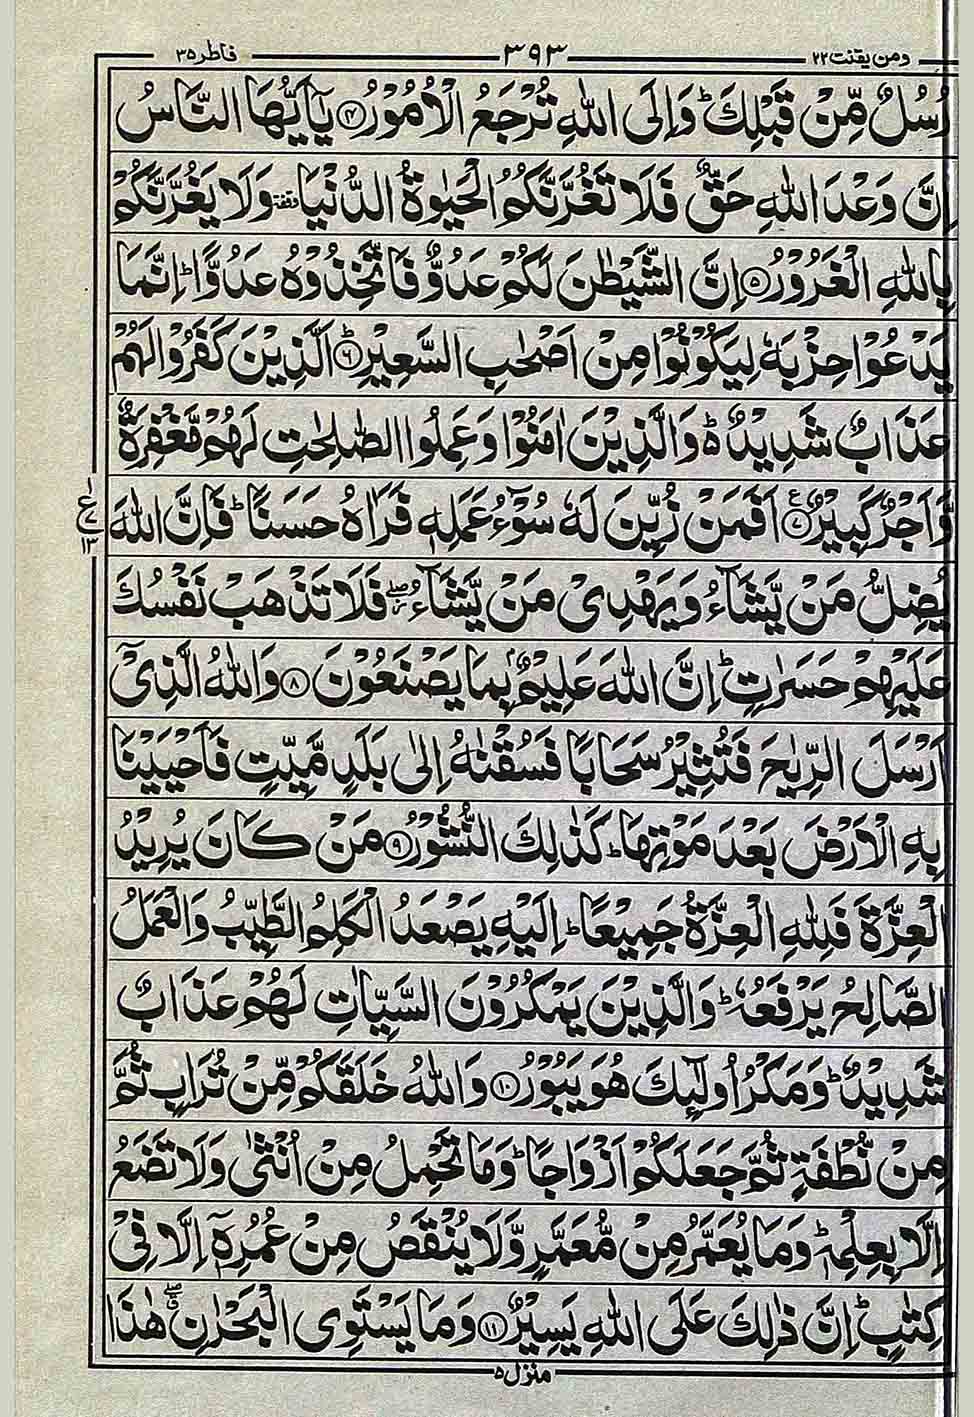 ومن یقنت ۲۲ ۳۹۳ فاطر ۳۵
رُسُلٌ مِّنْ قَبْلِكَ ؕ وَاِلَى اللّٰهِ تُرْجَعُ الْاُمُوْرُ ۴ یٰۤاَیُّهَا النَّاسُ
اِنَّ وَعْدَ اللّٰهِ حَقٌّ فَلَا تَغُرَّنَّكُمُ الْحَیٰوةُ الدُّنْیَا وقفة وَلَا یَغُرَّنَّكُمْ
بِاللّٰهِ الْغَرُوْرُ ۵ اِنَّ الشَّیْطٰنَ لَكُمْ عَدُوٌّ فَاتَّخِذُوْهُ عَدُوًّا ؕ اِنَّمَا
یَدْعُوْا حِزْبَهٗ لِیَكُوْنُوْا مِنْ اَصْحٰبِ السَّعِیْرِ ؕ ۶ اَلَّذِیْنَ كَفَرُوْا لَهُمْ
عَذَابٌ شَدِیْدٌ ؕ۬ وَالَّذِیْنَ اٰمَنُوْا وَعَمِلُوا الصّٰلِحٰتِ لَهُمْ مَّغْفِرَةٌ
وَّاَجْرٌ كَبِیْرٌ ۷ ع اَفَمَنْ زُیِّنَ لَهٗ سُوْٓءُ عَمَلِهٖ فَرَاٰهُ حَسَنًا ؕ فَاِنَّ اللّٰهَ
۱ ع ۷ ۱۳
یُضِلُّ مَنْ یَّشَآءُ وَیَهْدِیْ مَنْ یَّشَآءُ ۖؗ فَلَا تَذْهَبْ نَفْسُكَ
عَلَیْهِمْ حَسَرٰتٍ ؕ اِنَّ اللّٰهَ عَلِیْمٌۢ بِمَا یَصْنَعُوْنَ ۸ وَاللّٰهُ الَّذِیْۤ
اَرْسَلَ الرِّیٰحَ فَتُثِیْرُ سَحَابًا فَسُقْنٰهُ اِلٰی بَلَدٍ مَّیِّتٍ فَاَحْیَیْنَا
بِهِ الْاَرْضَ بَعْدَ مَوْتِهَا ؕ كَذٰلِكَ النُّشُوْرُ ۹ مَنْ كَانَ یُرِیْدُ
الْعِزَّةَ فَلِلّٰهِ الْعِزَّةُ جَمِیْعًا ؕ اِلَیْهِ یَصْعَدُ الْكَلِمُ الطَّیِّبُ وَالْعَمَلُ
الصَّالِحُ یَرْفَعُهٗ ؕ وَالَّذِیْنَ یَمْكُرُوْنَ السَّیِّاٰتِ لَهُمْ عَذَابٌ
شَدِیْدٌ ؕ وَمَكْرُ اُولٰٓئِكَ هُوَ یَبُوْرُ ۱۰ وَاللّٰهُ خَلَقَكُمْ مِّنْ تُرَابٍ ثُمَّ
مِنْ نُّطْفَةٍ ثُمَّ جَعَلَكُمْ اَزْوَاجًا ؕ وَمَا تَحْمِلُ مِنْ اُنْثٰی وَلَا تَضَعُ
اِلَّا بِعِلْمِهٖ ؕ وَمَا یُعَمَّرُ مِنْ مُّعَمَّرٍ وَّلَا یُنْقَصُ مِنْ عُمُرِهٖۤ اِلَّا فِیْ
كِتٰبٍ ؕ اِنَّ ذٰلِكَ عَلَی اللّٰهِ یَسِیْرٌ ۱۱ وَمَا یَسْتَوِی الْبَحْرٰنِ ۖۗ هٰذَا
منزل ۵